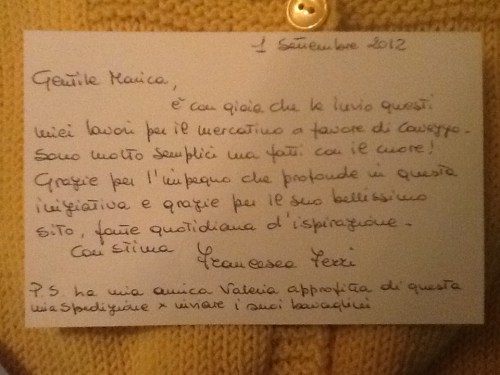 1 Settembre 2012
Gentile Monica,
è con gioia che le invio questi
miei lavori per il mercatino a favore di Cavezzo.
Sono molto semplici ma fatti con il cuore!
Grazie per l'impegno che profonde in questa
iniziativa e grazie per il suo bellissimo
sito, fonte quotidiana d'ispirazione.
Con stima
Francesca
P.S. La mia amica Valeria approfitta di questa
mia spedizione x inviare i suoi bavaglini